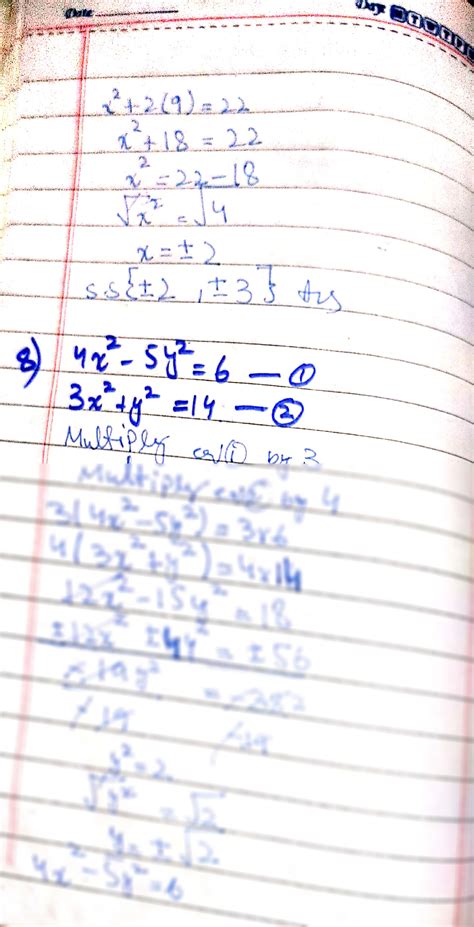 Date
Day
x²+2(9)=22
x²+18=22
x²=22-18
√x²=√4
x=±2
S.S{±2, ±3} Ans
8) 4x²-5y²=6 —①
3x²+y²=14 —②
Multiply by 3
Multiply by 4
3(4x²-5y²)=3x6
4(3x²+y²)=4x14
12x²-15y²=18
±12x² ±4y²=±56
y²=2
√y² =√2
y=±√2
4x²-5y²=6